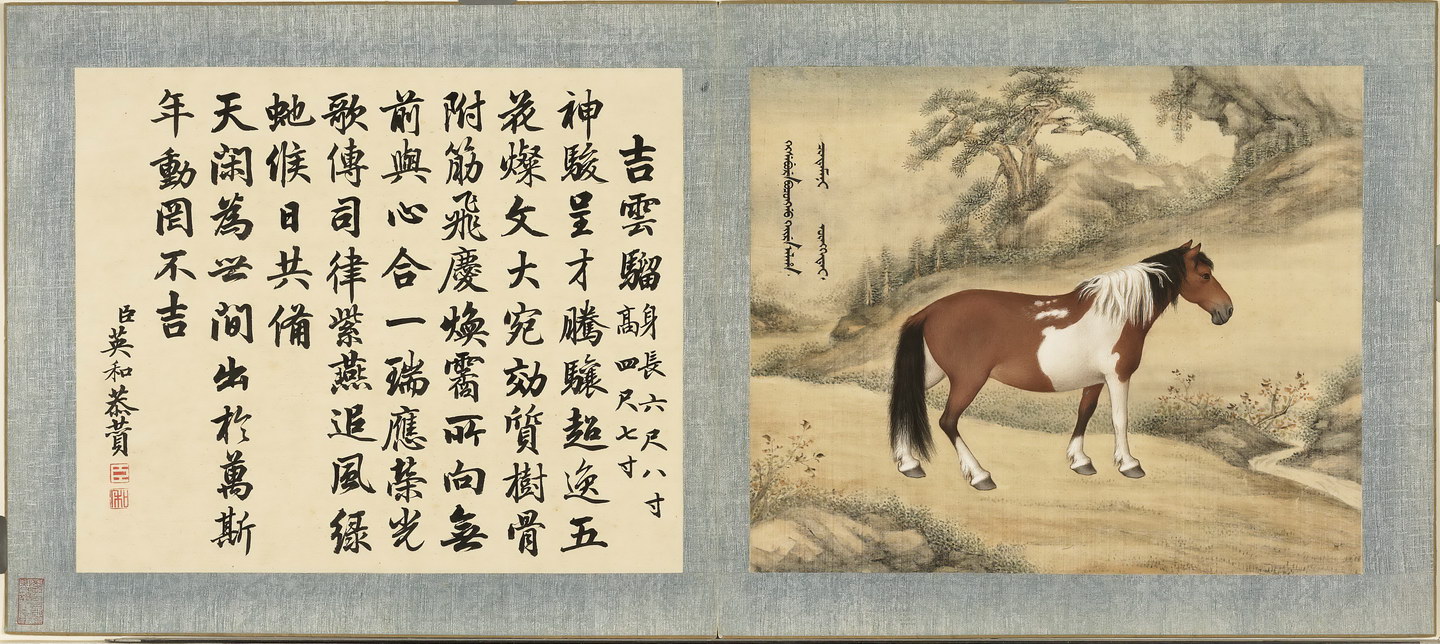 吉雲騮 身長六尺八寸 高四尺七寸
神駿呈才騰驤超逸五
花燦文大宛效質樹骨
附筋飛慶煥霱所向無
前與心合一瑞應榮光
歌傳司律紫燕追風綠
虵候日共備
天閑為世間出於萬斯
年動罔不吉
臣英和恭贊
臣
和